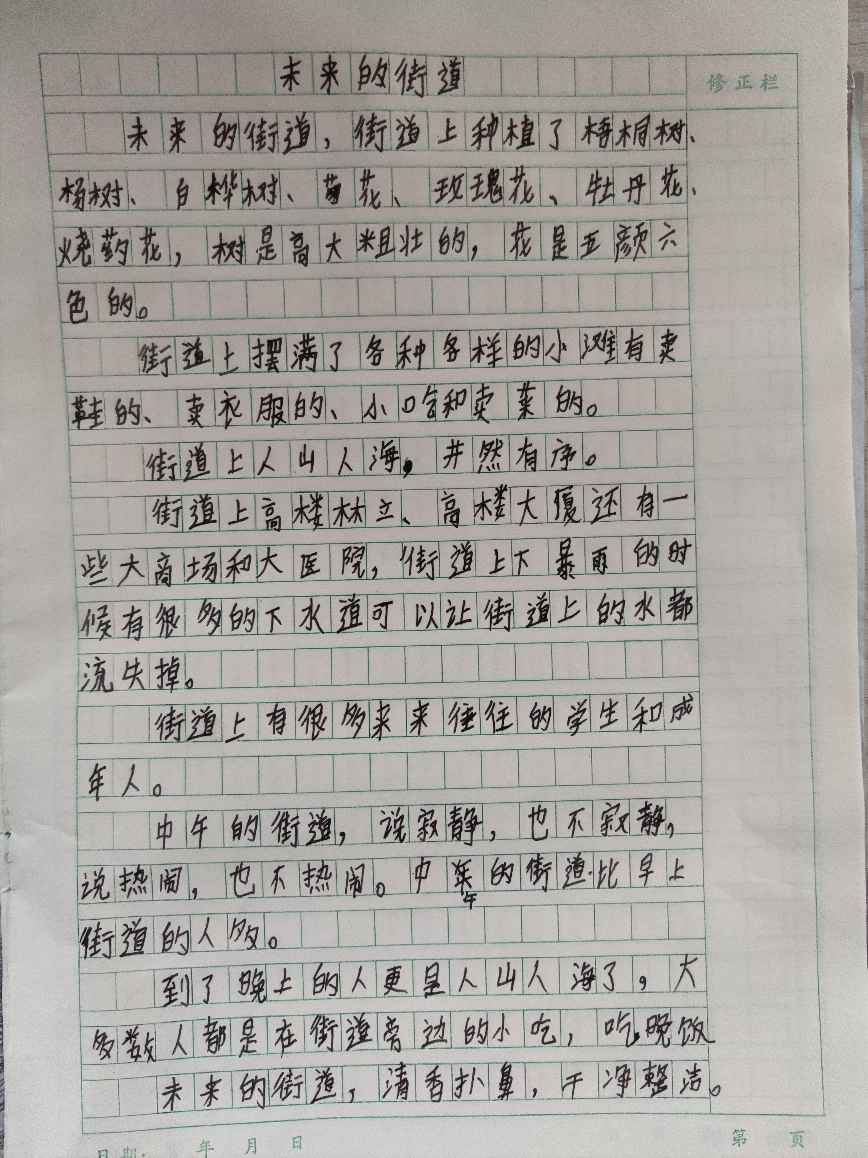 未来的街道
修正栏
未来的街道，街道上种植了梧桐树、
杨树、白桦树、菊花、玫瑰花、牡丹花、
烧药花，树是高大粗壮的，花是五颜六
色的。
街道上摆满了各种各样的小滩有卖
鞋的、卖衣服的、小吃和卖菜的。
街道上人山人海，井然有序。
街道上高楼林立、高楼大厦还有一
些大商场和大医院，街道上下暴雨的时
候有很多的下水道可以让街道上的水都
流失掉。
街道上有很多来来往往的学生和成
年人。
中午的街道，说寂静，也不寂静，
说热闹，也不热闹。中午的街道比早上
街道的人多。
到了晚上的人更是人山人海了，大
多数人都是在街道旁边的小吃，吃晚饭
未来的街道，清香扑鼻，干净整洁。
日期： 年 月 日
第 页